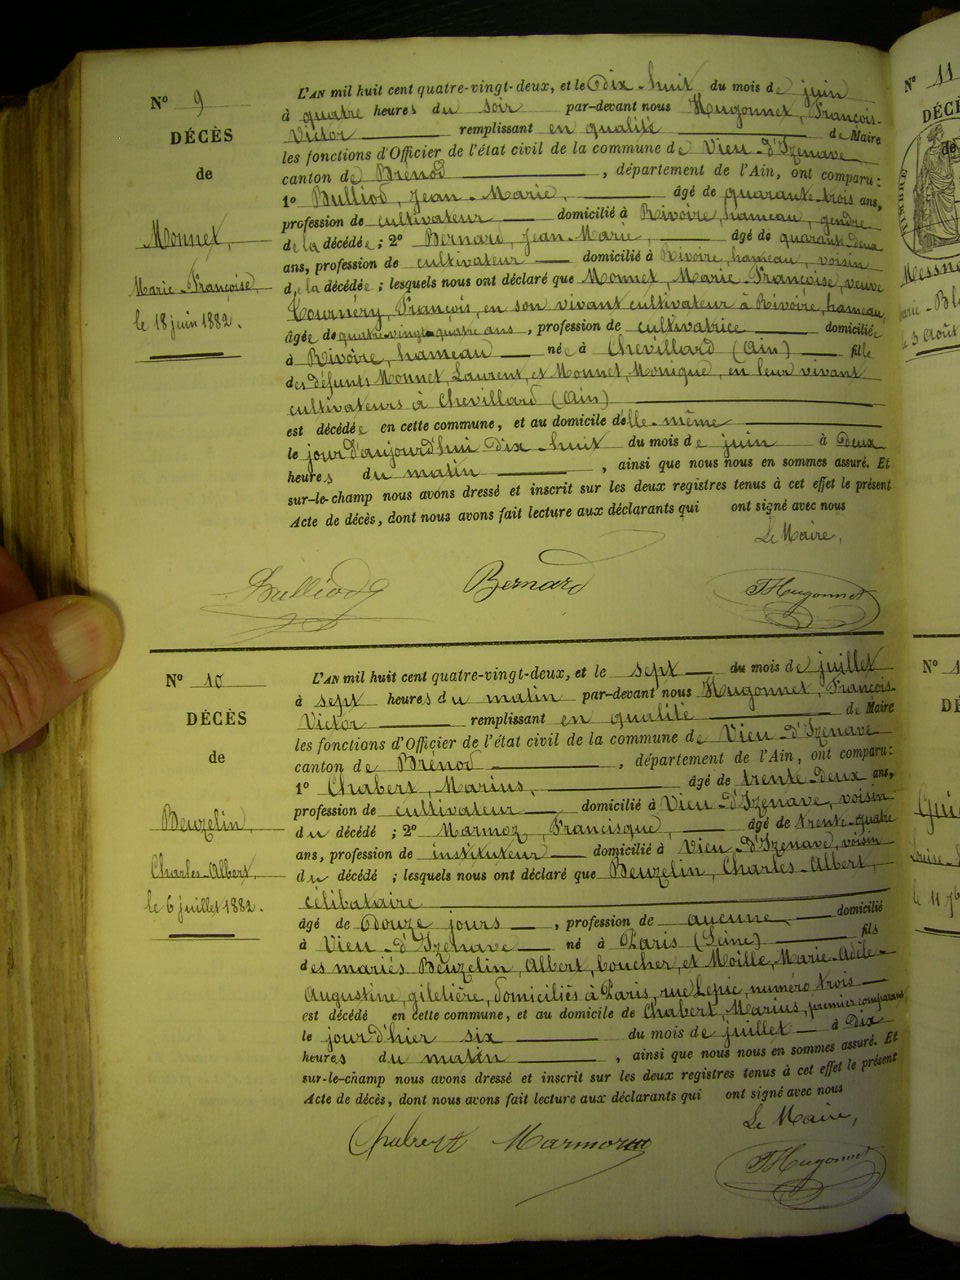 N° 9
DÉCÈS
de
Monnet,
Marie-Françoise,
le 18 juin 1882.
L'AN mil huit cent quatre-vingt-deux, et le Dix-huit du mois de juin
à quatre heures du soir par-devant nous Hugonnet, François-
Victor remplissant en qualité de Maire
les fonctions d'Officier de l'état civil de la commune de Vieu-d'Izenave
canton de Brénod, département de l'Ain, ont comparu :
1° Bulliod, Jean-Marie, âgé de quarante-trois ans,
profession de cultivateur domicilié à Rivoire, hameau, gendre
de la décédée ; 2° Bernard, Jean-Marie, âgé de quarante-deux
ans, profession de cultivateur domicilié à Rivoire, hameau, voisin
de la décédée ; lesquels nous ont déclaré que Monnet, Marie-Françoise, veuve
Tournéry, François, en son vivant cultivateur à Rivoire, hameau,
âgée de quatre-vingt-quatre ans, profession de cultivatrice domiciliée
à Rivoire, hameau née à Chevillard (Ain) fille
des défunts Monnet, Laurent, et Monnet, Monique, en leur vivant
cultivateurs à Chevillard (Ain)
est décédée en cette commune, et au domicile d'elle-même
le jour d'aujourd'hui Dix-huit du mois de juin à Deux
heures du matin, ainsi que nous nous en sommes assuré. Et
sur-le-champ nous avons dressé et inscrit sur les deux registres tenus à cet effet le présent
Acte de décès, dont nous avons fait lecture aux déclarants qui ont signé avec nous
Le Maire,
Bulliod Bernard FHugonnet
N° 10
DÉCÈS
de
Beuzelin,
Charles-Albert,
le 6 juillet 1882.
L'AN mil huit cent quatre-vingt-deux, et le sept du mois de juillet
à sept heures du matin par-devant nous Hugonnet, François-
Victor remplissant en qualité de Maire
les fonctions d'Officier de l'état civil de la commune de Vieu-d'Izenave
canton de Brénod, département de l'Ain, ont comparu :
1° Chabert, Marius, âgé de trente-deux ans,
profession de cultivateur domicilié à Vieu-d'Izenave, voisin
du décédé ; 2° Marmoz, Francisque, âgé de trente-quatre
ans, profession de instituteur domicilié à Vieu-d'Izenave, voisin
du décédé ; lesquels nous ont déclaré que Beuzelin, Charles-Albert,
célibataire
âgé de Douze jours, profession de aucune, domicilié
à Vieu-d'Izenave né à Paris (Seine) fils
des mariés Beuzelin, Albert, boucher, et Moille, Marie-Adèle-
Augustine, giletière, domiciliés à Paris, rue Lepic, numéro trois
est décédé en cette commune, et au domicile de Chabert, Marius, premier comparant
le jour d'hier six du mois de juillet à Dix
heures du matin, ainsi que nous nous en sommes assuré. Et
sur-le-champ nous avons dressé et inscrit sur les deux registres tenus à cet effet le présent
Acte de décès, dont nous avons fait lecture aux déclarants qui ont signé avec nous
Le Maire,
Chabert Marmoz FHugonnet
N° 11
DÉCÈ
de
N° 1
DÉ